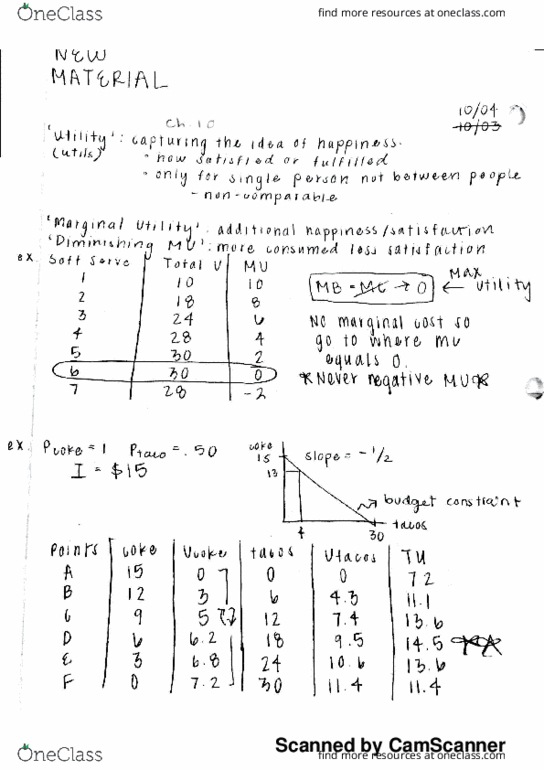 OneClass find more resources at oneclass.com
NEW
MATERIAL
10/04
ch.10 10/03
'Utility': capturing the idea of happiness.
(utils) • how satisfied or fulfilled
• only for single person not between people
- non-comparable
'Marginal Utility': additional happiness/satisfaction
'Diminishing MU': more consumed less satisfaction
ex. Soft Serve Total U MU
1 10 10
2 18 8
3 24 6
4 28 4
5 30 2
6 30 0
7 28 -2
MB = MC → 0 ← Max Utility
No marginal cost so
go to where mu
equals 0.
*Never negative MU*
ex. Pcoke = 1 Ptaco = .50
I = $15
coke
15 slope = -1/2
13
budget constraint
4 30 tacos
Points coke Ucoke tacos Utacos TU
A 15 0 0 0 7.2
B 12 3 6 4.3 11.1
C 9 5 12 7.4 13.6
D 6 6.2 18 9.5 14.5
E 3 6.8 24 10.6 13.6
F 0 7.2 30 11.4 11.4
Scanned by CamScanner
OneClass find more resources at oneclass.com